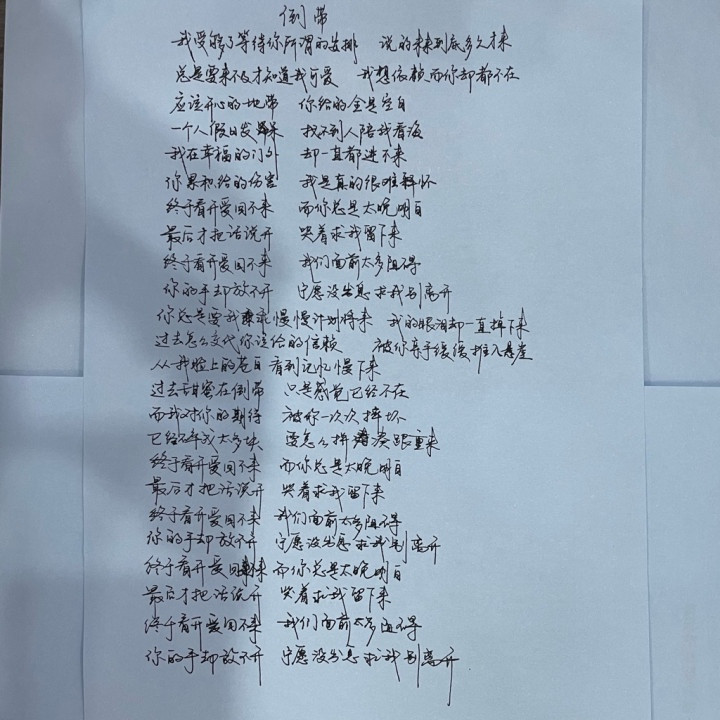 倒带
我受够了等待你所谓的安排 说的未来到底多久才来
总是要来不及才知道我可爱 我想依赖而你却都不在
应该开心的地带 你给的全是空白
一个人假日发呆 找不到人陪我看海
我在幸福的门外 却一直都进不来
你累积给的伤害 我是真的很难释怀
终于看开爱回不来 而你总是太晚明白
最后才把话说开 哭着求我留下来
终于看开爱回不来 我们面前太多阻碍
你的手却放不开 宁愿没出息求我别离开
你总是要我乖乖慢慢计划将来 我的眼泪却一直掉下来
过去怎么交代你该给的信赖 被你亲手缓缓推入悬崖
从我脸上的苍白看到记忆慢下来
过去甜蜜在倒带 只是感觉已经不在
而我对你的期待 被你一次次摔坏
已经碎成太多块 要怎么拼凑跟重来
终于看开爱回不来 而你总是太晚明白
最后才把话说开 哭着求我留下来
终于看开爱回不来 我们面前太多阻碍
你的手却放不开 宁愿没出息求我别离开
终于看开爱回不来 而你总是太晚明白
最后才把话说开 哭着求我留下来
终于看开爱回不来 我们面前太多阻碍
你的手却放不开 宁愿没出息求我别离开